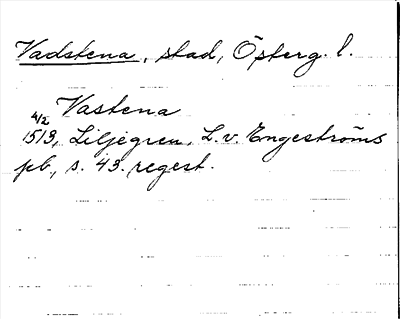 Vadstena, stad, Österg. l.
Vastena
4/2
1513, Liljegren, L. v. Engeströms
pb., s. 43. regest.